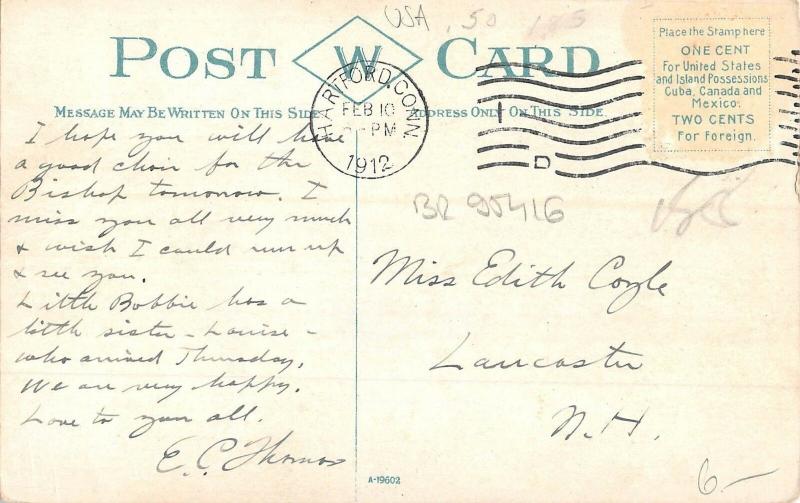 USA .50
POST W CARD
Place the Stamp here
ONE CENT
For United States
and Island Possessions
Cuba, Canada and
Mexico.
TWO CENTS
For Foreign.
MESSAGE MAY BE WRITTEN ON THIS SIDE
ADDRESS ONLY ON THIS SIDE
HARTFORD, CONN.
FEB 10
PM
1912
D
I hope you will have
a good choir for the
Bishop tomorrow. I
miss you all very much
& wish I could run up
& see you.
Little Bobbie has a
little sister - Louise -
who arrived Thursday.
We are very happy.
Love to you all.
E. C. Thomas
BR 90416
Miss Edith Coyle
Lancaster
N.H.
A-19602
6-